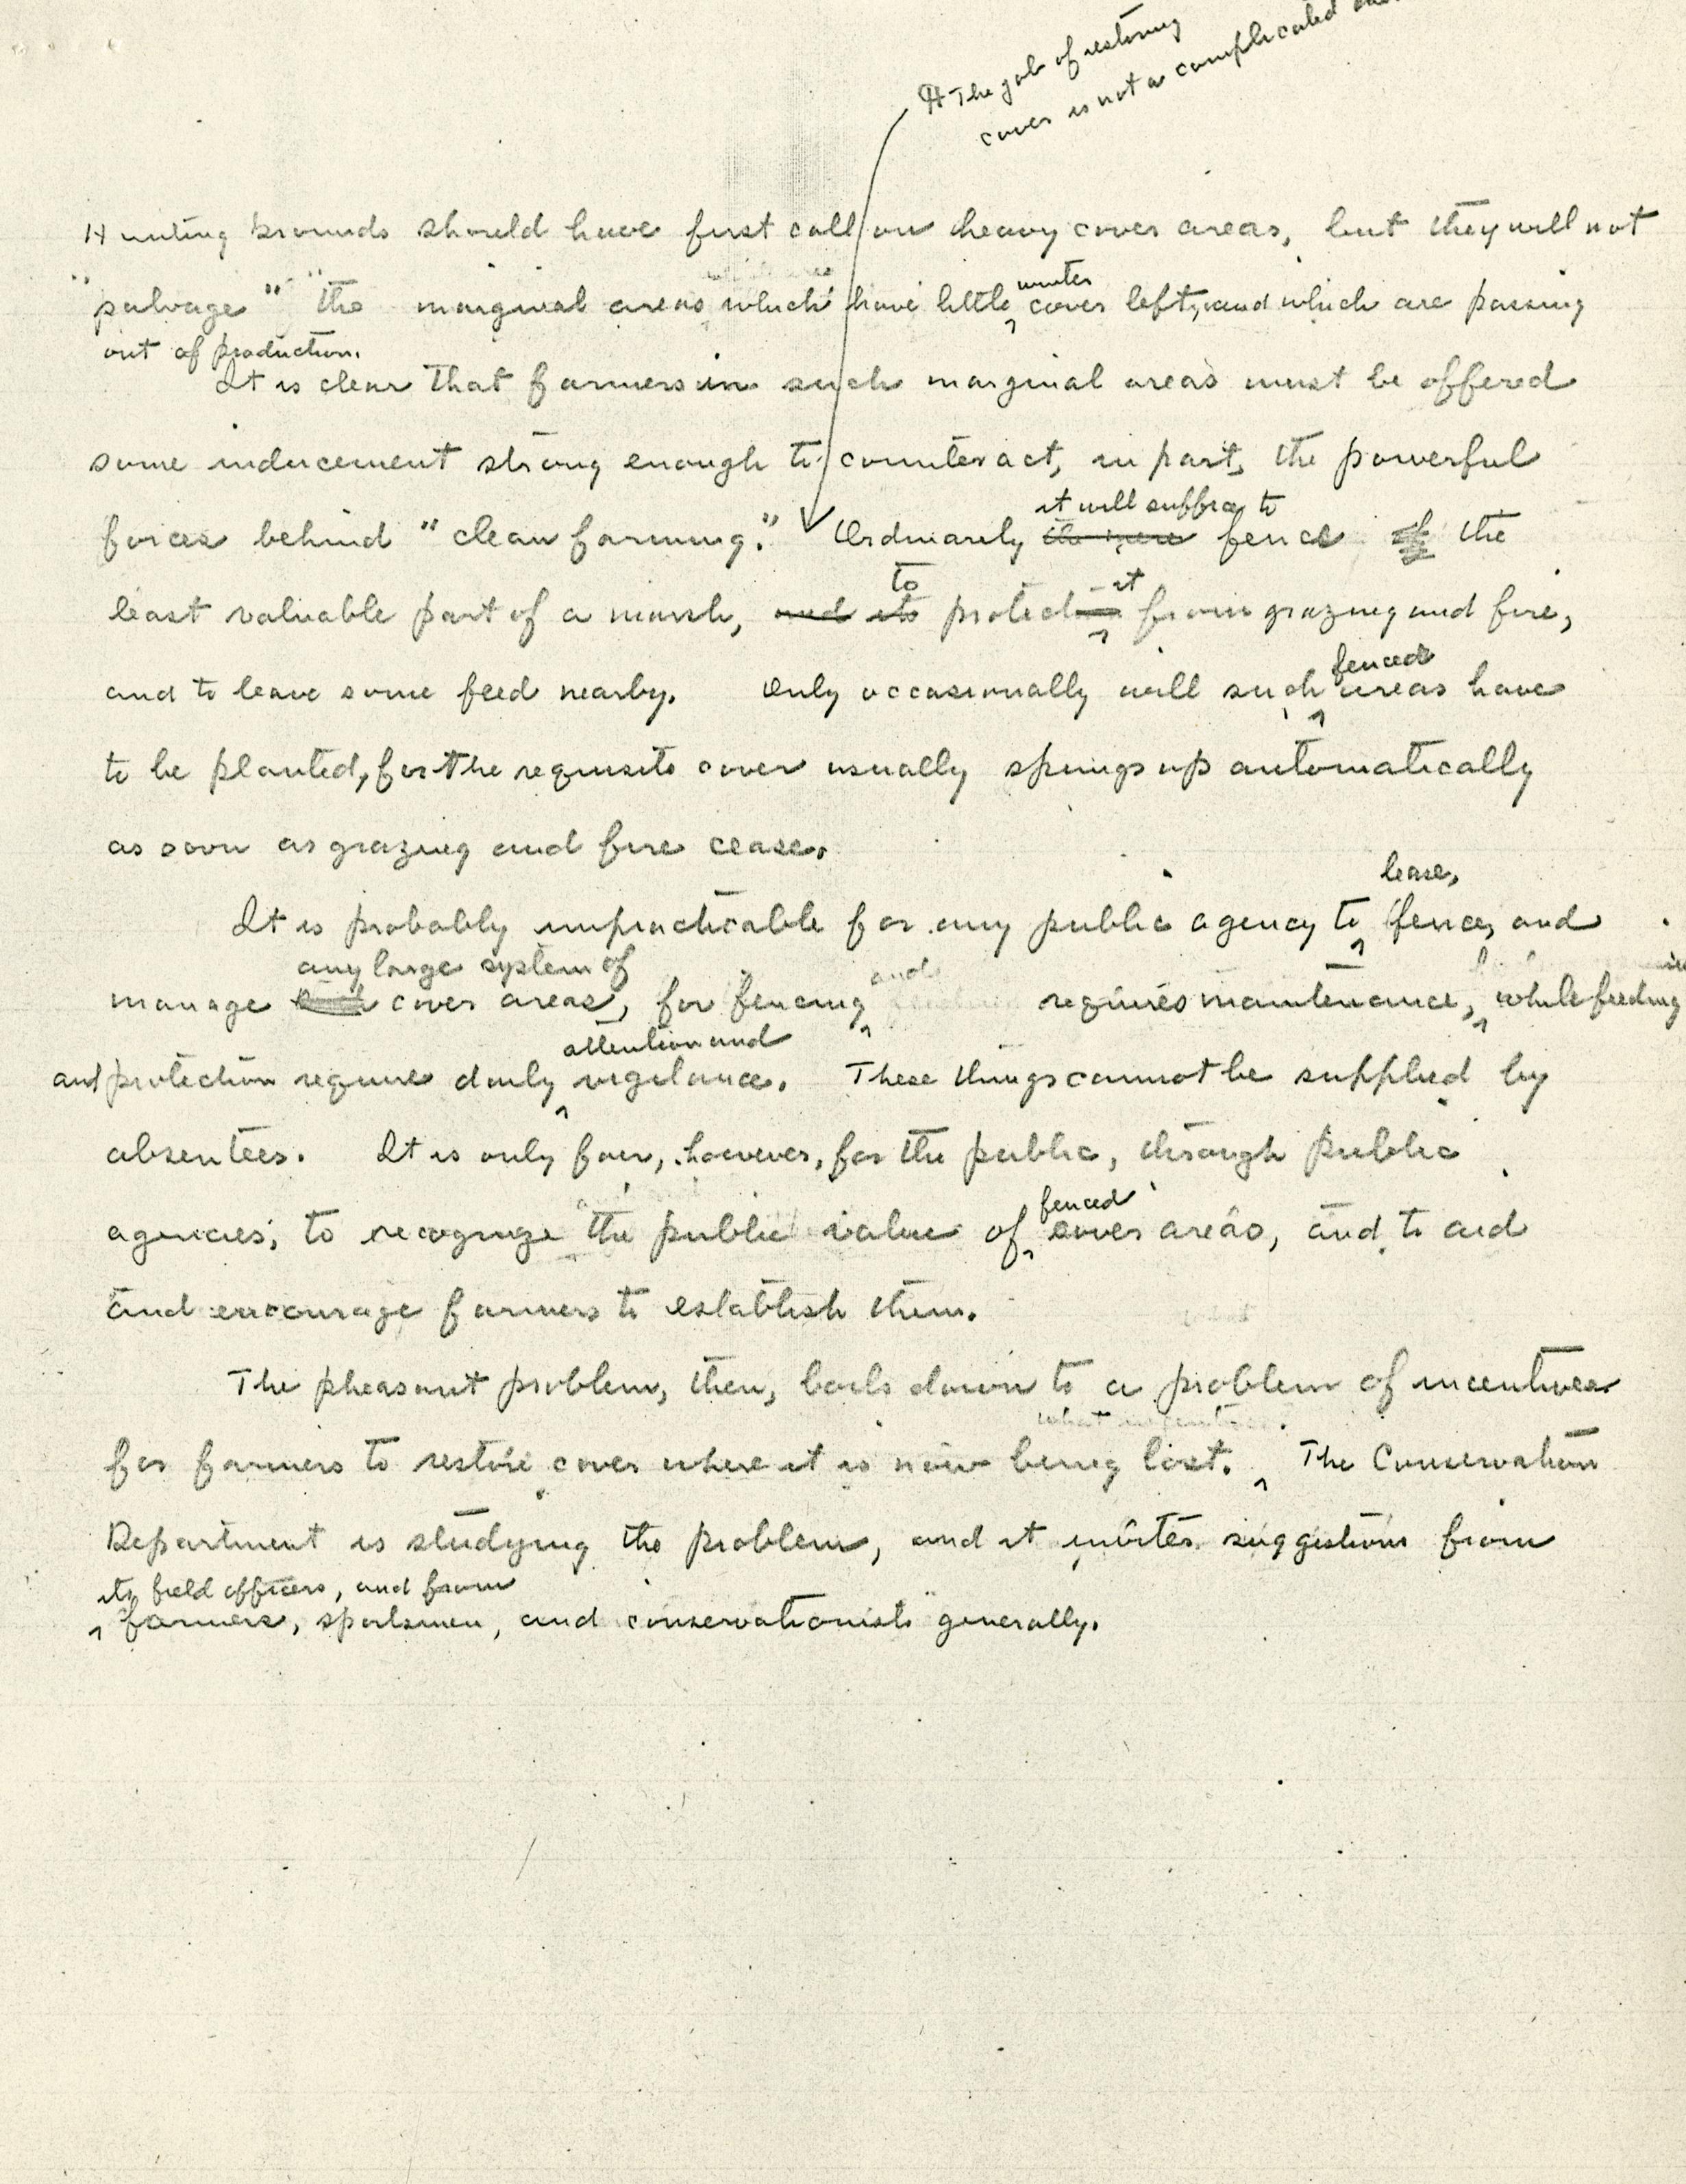 ¶ The job of restoring
cover is not a complicated
Hunting Grounds should have first call on heavy cover areas, but they will not
winter
"salvage" the marginal areas which have little cover left, and which are passing
out of production.
It is clear that farmers in such marginal areas must be offered
some inducement strong enough to counteract, in part, the powerful
it will suffice to
forces behind "clean farming." Ordinarily fence the
to it
least valuable part of a marsh, and its protect from grazing and fire,
fenced
and to leave some feed nearby. Only occasionally will such areas have
to be planted, for the requisite cover usually springs up automatically
as soon as grazing and fire cease.
lease,
It is probably impracticable for any public agency to fence, and
any large system of and
manage cover areas, for fencing requires maintenance, while feeding
attention and
and protection require daily vigilance. These things cannot be supplied by
absentees. It is only fair, however, for the public, through public
fenced
agencies, to recognize the public value of cover areas, and to aid
and encourage farmers to establish them.
The pheasant problem, then, boils down to a problem of incentives
for farmers to restore cover where it is now being lost. The Conservation
Department is studying the problem, and it invites suggestions from
its field officers, and from
farmers, sportsmen, and conservationists generally.